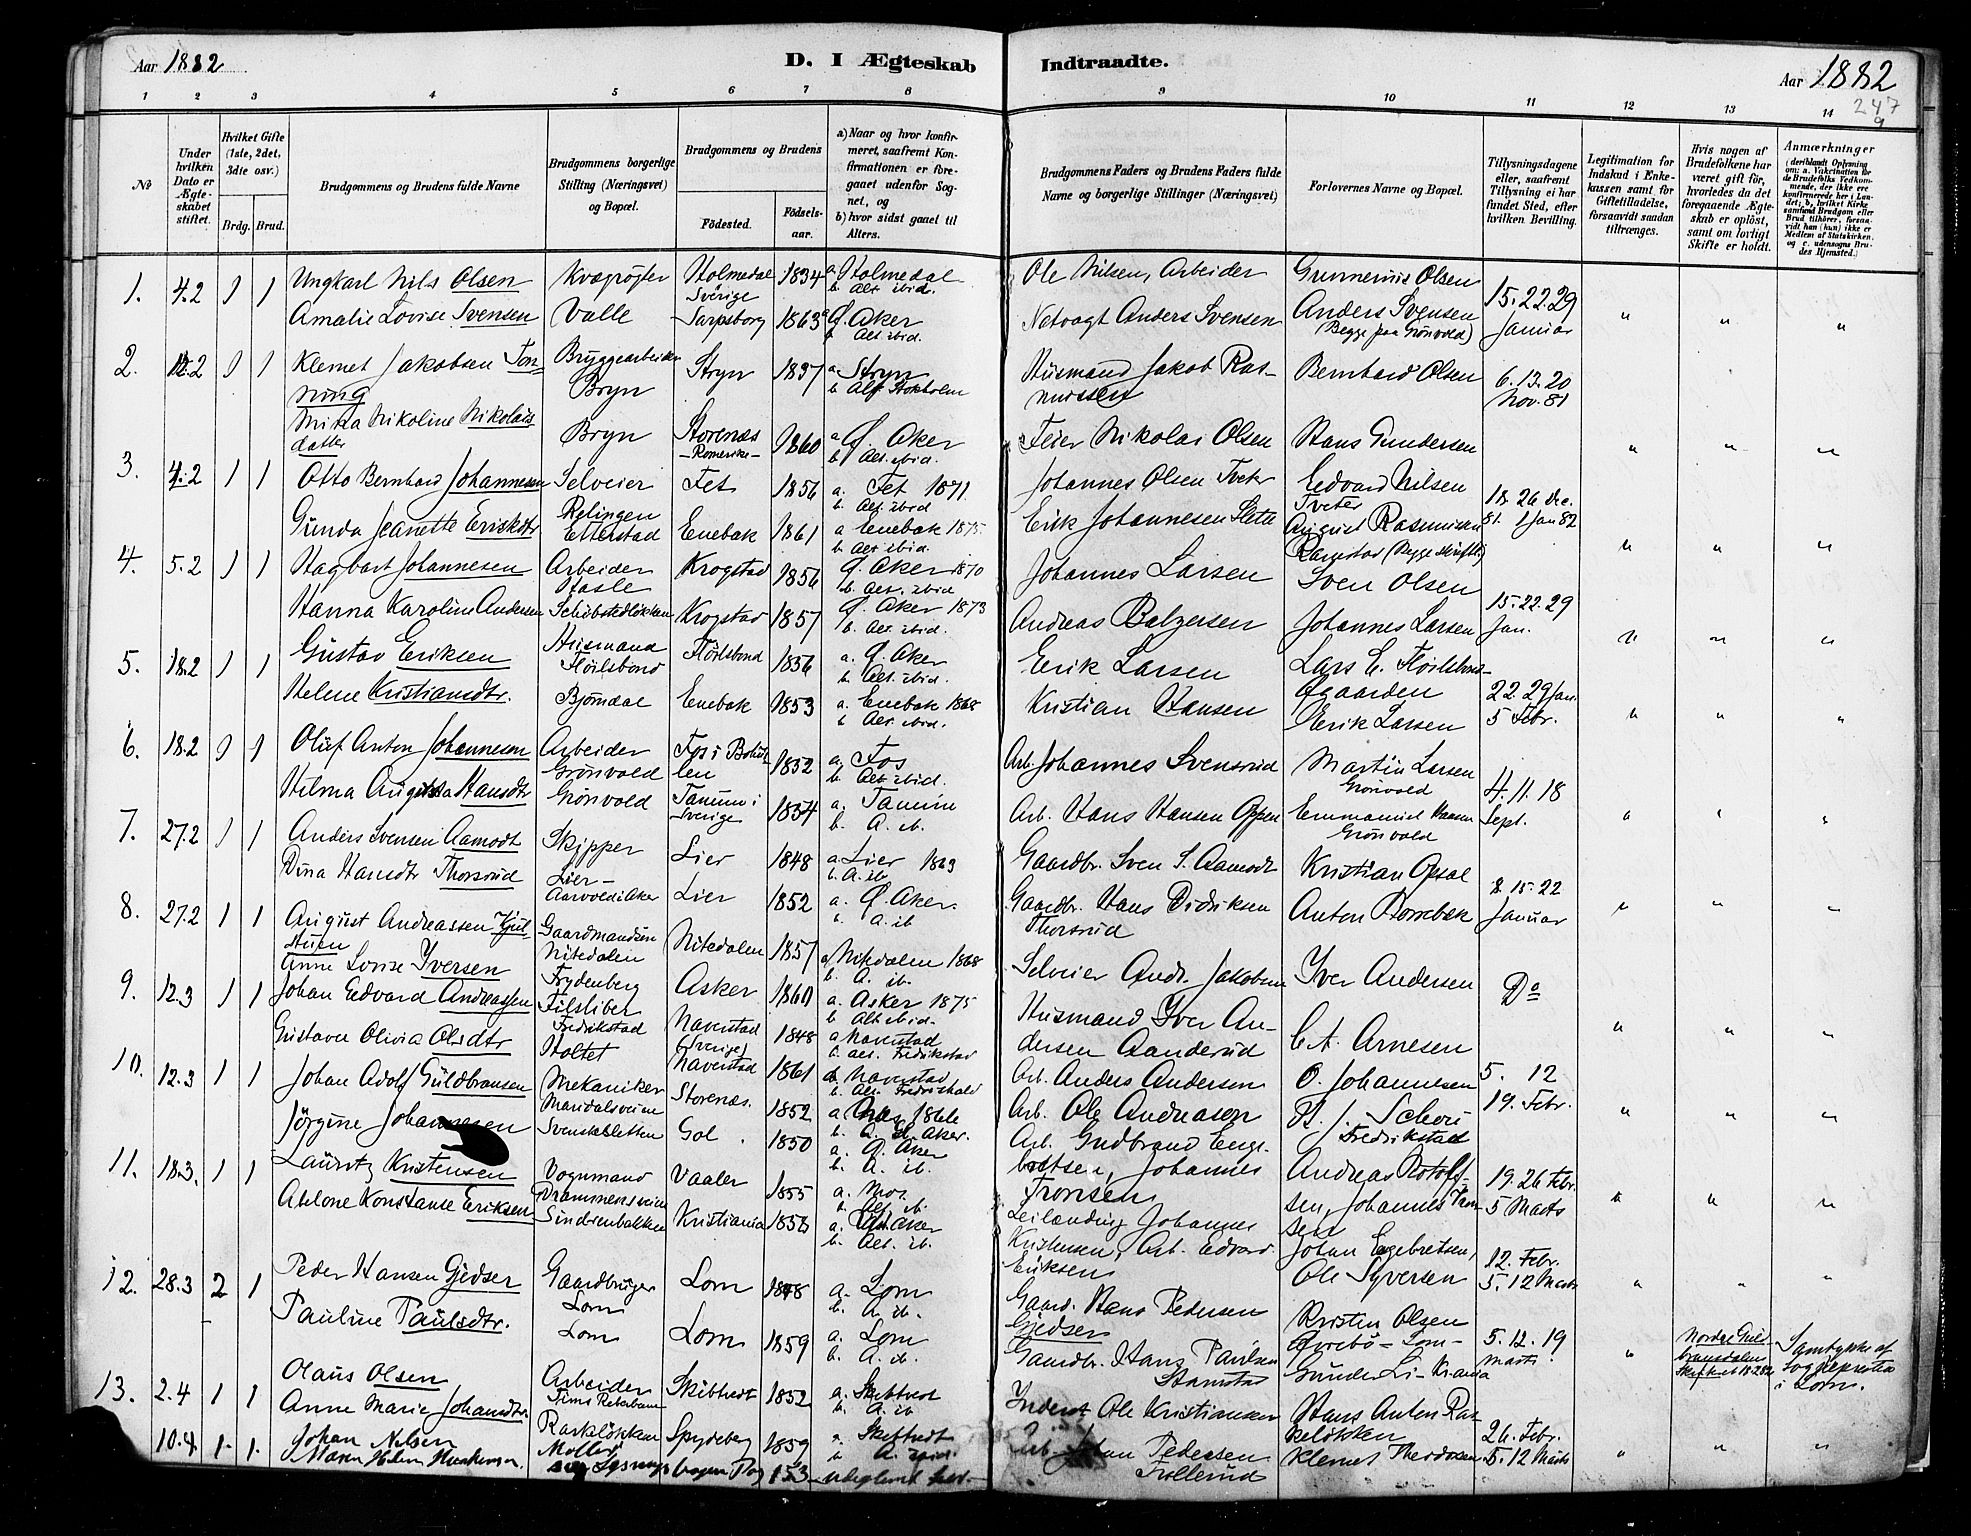 Aar 1882
D. I Ægteskab Indtraadte.
Aar 1882
247
9
1 2 3 4 5 6 7 8 9 10 11 12 13 14
No
Under hvilken Dato er Ægteskabet stiftet.
Hvilket Gifte (1ste, 2det, 3die osv.)
Brdg. Brud.
Brudgommens og Brudens fulde Navne
Brudgommens borgerlige Stilling (Næringsvei) og Bopæl.
Brudgommens og Brudens
Födested.
Födsels-aar.
a) Naar og hvor konfirmeret, saafremt Konfirmationen er foregaaet udenfor Sognet, og
b) hvor sidst gaaet til Alters.
Brudgommens Faders og Brudens Faders fulde Navne og borgerlige Stillinger (Næringsvei)
Forlovernes Navne og Bopæl.
Tillysningsdagene eller, saafremt Tillysning ei har fundet Sted, efter hvilken Bevilling.
Legitimation for Indskud i Enkekassen samt for Giftetilladelse, forsaavidt saadan tiltrænges.
Hvis nogen af Brudefolkene har været gift før, hvorledes da det foregaaende Ægteskab er opløst, samt om lovligt Skifte er holdt.
Anmærkninger
1. 4.2 1 1 Ungkarl Nils Olsen Kvægrögter Holmedal Sverige 1834 a Holmedal b. Alt. ibid. Ole Nilsen, Arbeider Gunnerius Olsen 15.22.29 Januar
Amalie Lovise Svensen Valle Sarpsborg 1863 a Ö. Aker b Alt. ibid. Natvagt Anders Svensen Anders Svensen (Begge paa Grönvold) " " "
2. 12.2 1 1 Klemet Jakobsen Ton-
ning Bryggearbeider Bryn Stryn 1837 a Stryn b Alt Stokholm Husmand Jakob Ras-
mussen Bernhard Olsen 6.13.20 Nov. 81
Nikoline Nikolais
datter Bryn Storenæs -Romerike- 1860 a Ö. Aker b Alt. ibid. Feier Nikolai Olsen Hans Gundersen " " "
3. 4.2 1 1 Otto Bernhard Johannesen Selveier Fet 1856 a. Fet 1871 b. Alt. ibid Johannes Olsen Tveter Edvard Nilsen Tveter 18 26 Dec.
Gunda Jeanette Eriksdtr Relingen Etterstad Enebak 1861 a Enebak 1875 b Alt ibid. Erik Johannesen August Rasmussen Ramstad 81. 1 Jan 82 " " "
4. 5.2 1 1 Hagbart Johannesen Arbeider Hasle Krogstad 1856 Ö. Aker 1870 b. Alt. ibid Johannes Larsen Sven Olsen
Hanna Karoline Andersen Schübstedlökken Krogstad 1857 Ö. Aker 1873 b. Alt. ibid. Andreas Balzersen Johannes Larsen 15.22.29 Jan. " " "
5. 18.2 1 1 Gustav Eriksen Husmand Flöilsbond Flöilsbond 1856 a. Ö. Aker b. Alt. ibid. Erik Larsen Lars E. Flöilsbond-
ögaarden
Helene Kristiansdtr. Bjömdal Enebak 1853 a. Enebak 1868 b Alt. ibid. Kristian Hansen Erik Larsen 22.29 Jan. 5 Febr. " " "
6. 18.2 1 1 Oluf Anton Johannesen Arbeider Grönvold Fos i 1852 a Fos b. Alt ibid. Arb. Johannes Svensrud Martin Larsen Grönvold
Hilma Augusta Hansdtr Grönvold Tanum i Sverige 1854 a. Tanum b. A. ib. Arb. Hans Hansen Oppen Emmanuel Hansen Grönvold 4.11.18 Sept. " " "
7. 27.2 1 1 Anders Svensen Aamodt Skipper Lier- Lier 1848 a. Lier 1863 b. A. ib Gaardbr. Sven S. Aamodt Kristian Opsal
Dina Hansdtr Thorsrud Aarvold i Aker Lier 1852 a. Ö. Aker. b. A. ib Gaardbr. Hans Didriksen
Thorsrud Anton Borrebæk 8 15 22 Januar " " "
8. 27.2 1 1 August Andreassen Kjul-
stuen Gaardmandsön Nitedalen Nitedalen 1857 a Nitedalen 1868 b. A. ib. Selveier Andr. Jakobsen Iver Andersen Do
Anne Lovise Iversen Frydenberg Asker 1860 a. Asker 1875 b Alt ibid. Husmand Iver An-
dersen Aanderud C. A. Arnesen " " "
9. 12.3 1 1 Johan Edvard Andreassen Filsliber Fredrikstad Naverstad (Sverige) 1848 a Naverstad b. Alt. Fredrikstad Arb. Anders Andersen O. Johannesen 5. 12
Gustava Olivia Olsdtr Holtet Naverstad 1861 a Naverstad b. Alt. Fredrikshald Arb. Ole Andreason H. J. Schou Fredrikstad 19. Febr. " " "
10. 12.3 1 1 Johan Adolf Guldbransen Mekaniker Maridalsveien Storenæs. 1852 a Næs 1866 b. A. Ö. Aker. Arb. Gudbrand Enge-
bretsen, Johannes
Jörgine Johannesen Svenskeletten Gol. 1850 a. Ö. Aker b. A. ib. Tronsen Andreas Rotolf-
sen, Johannes Tron-
sen 19.26 Febr. 5 Marts " " "
11. 18.3. 1 1 Lauritz Kristensen Vognmand Drammensveien Vaaler 1855 a. Mos. b. Alt. ib. Leilænding Johannes
Kristensen, Arb. Edvard
Abelone Konstanse Eriksen Sindsenbakken Kristiania 1856 a. Aker b. Alt. ib. Eriksen Johan Engebretsen,
Ole Syversen 12. Febr. 5. 12 Marts " " "
12. 28.3 2 1 Peder Hansen Gjedser Gaardbruger Lom Lom 1848 a. Lom b. A. ib. Gaard. Hans Pedersen
Gjedser Kristin Olsen
Pauline Paulsdtr. Lom Lom 1859 a. Lom b. A. ib. Gaardbr. Hans Paulsen
Stamstad -Lom-
Gunder Li- Krania 5. 12. 19 Marts. " Nordre Guld-
bransdalen Samtykke af
Sogneprester
i Lom.
13. 2.4 1 1 Olaus Olsen Arbeider Reberbane Skibtvet 1852 a. Skibtvet b. A. ib Inderst Ole Kristiansen Hans Anton Ras-
kelökken
Anne Marie Johansdtr. Raskelökken Spydeberg 1859 a Skibtvet b A. ibid. Arb. Johan Pedersen
Follerud Klemet Theodorsen 26. Febr. 5. 12 Marts " " "
10.4. 1. 1. Johan Nilsen Möller
Maren